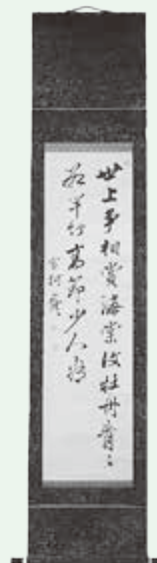 世上争相賞海棠牡丹青々
数竿竹高節少人看